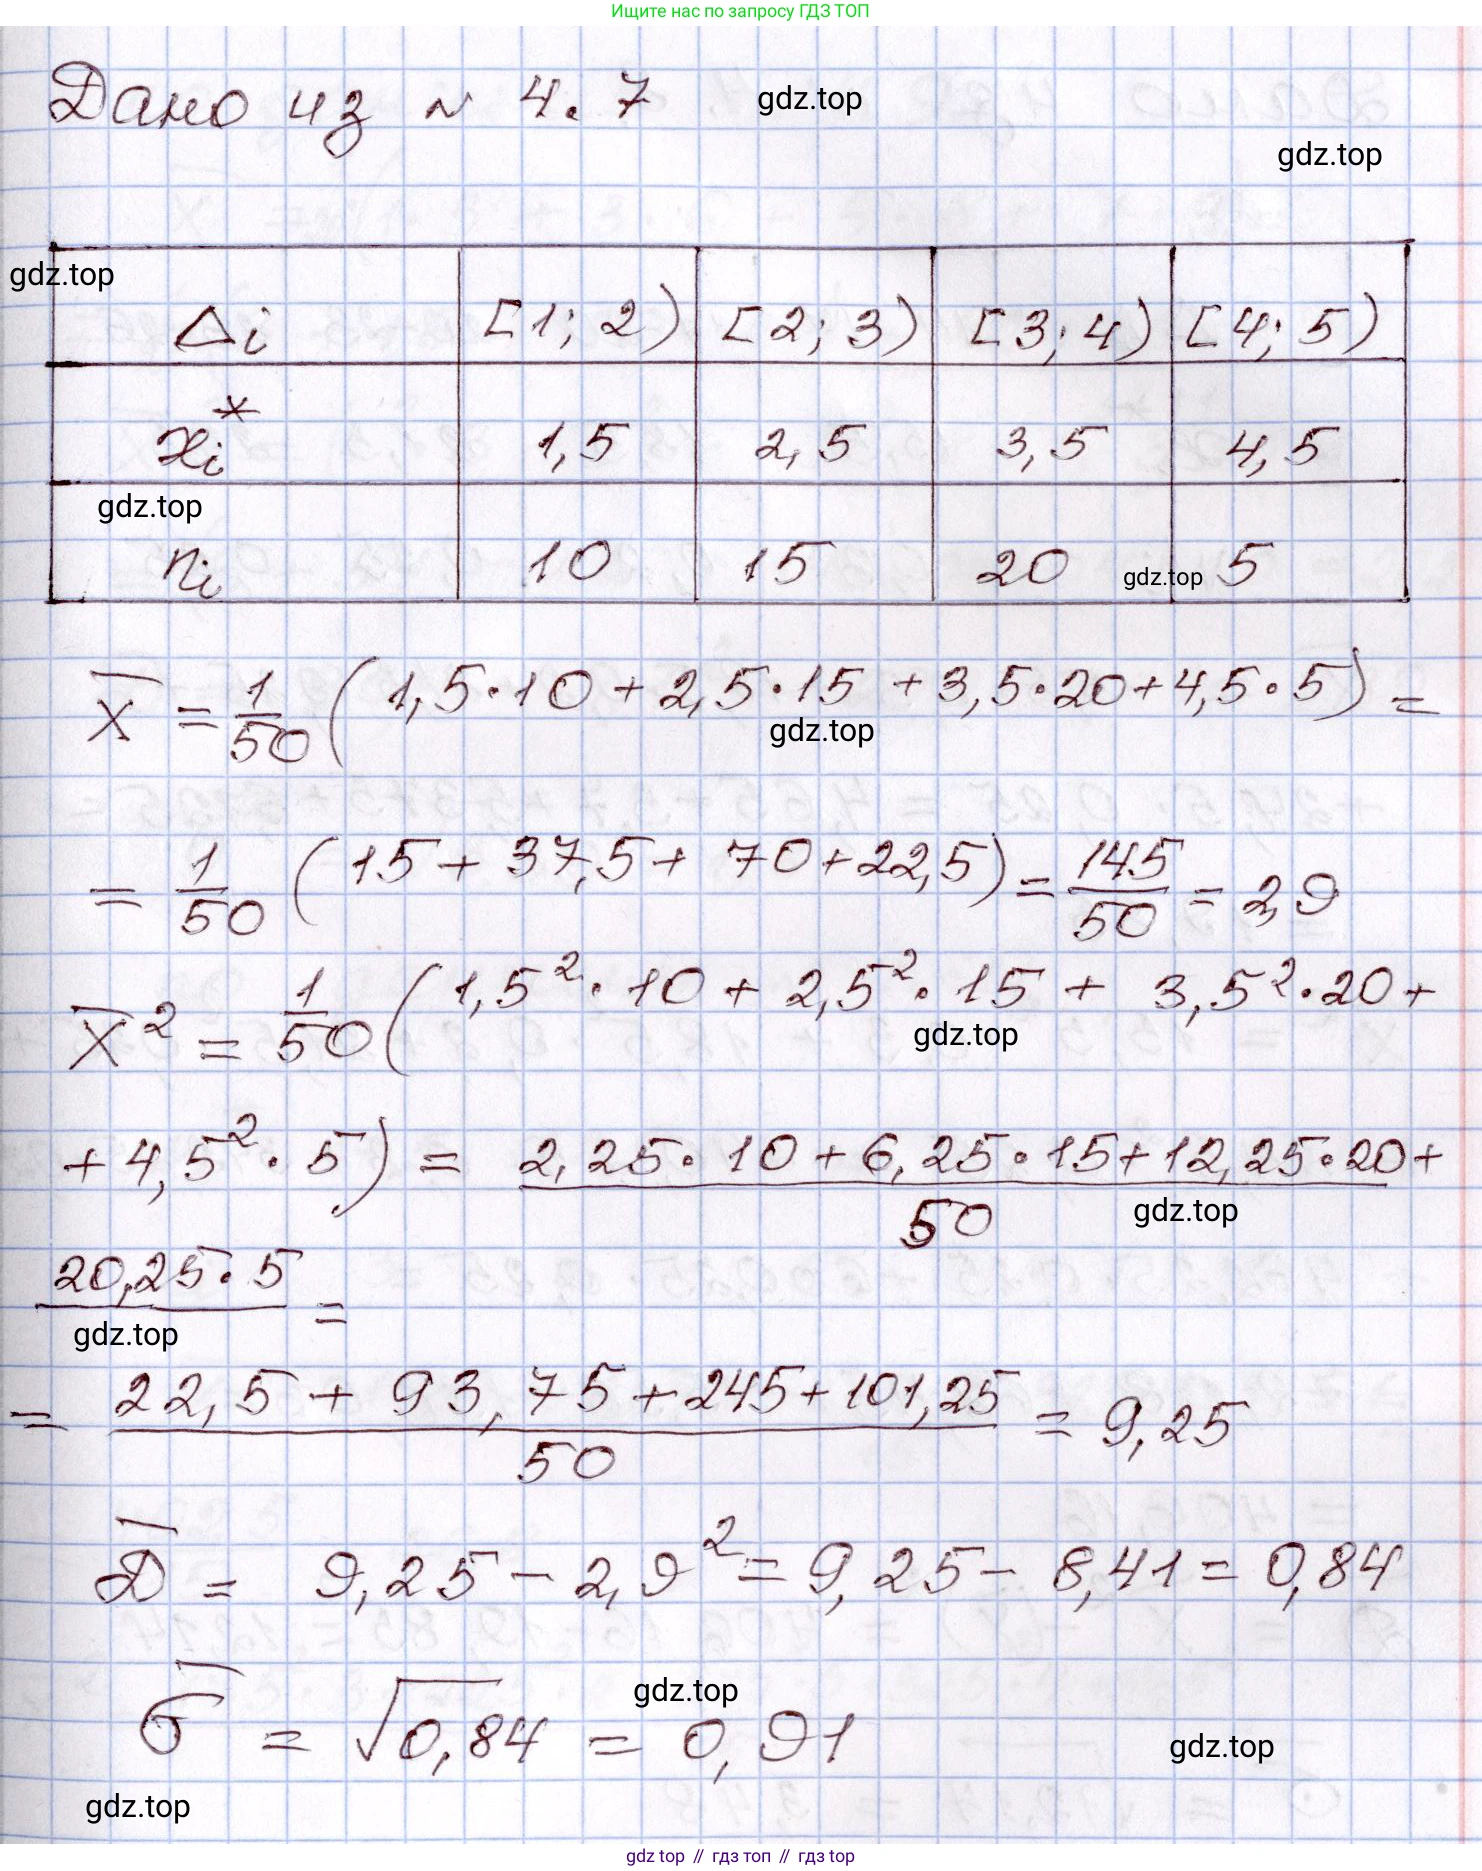 Ищите нас по запросу ГДЗ ТОП
Дано из № 4.7
gdz.top
gdz.top
gdz.top
Δi [1; 2) [2; 3) [3; 4) [4; 5)
xi* 1,5 2,5 3,5 4,5
gdz.top
ni 10 15 20 5
gdz.top
X̅ = 1/50 (1,5·10 + 2,5·15 + 3,5·20 + 4,5·5) =
gdz.top
= 1/50 (15 + 37,5 + 70 + 22,5) = 145/50 = 2,9
X̅² = 1/50 (1,5²·10 + 2,5²·15 + 3,5²·20 +
gdz.top
+ 4,5²·5) = 2,25·10 + 6,25·15 + 12,25·20 +
50
gdz.top
20,25·5 =
gdz.top
= 22,5 + 93,75 + 245 + 101,25 / 50 = 9,25
D̅ = 9,25 − 2,9² = 9,25 − 8,41 = 0,84
gdz.top
σ̅ = √0,84 = 0,91
gdz.top
gdz.top
gdz top // гдз топ // гдз top